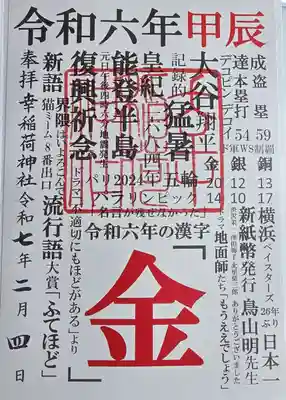 令和六年甲辰
成盗塁 59
達本塁打 54
デコピン・デコイ
大谷翔平
記録的猛暑
皇紀二六八四年
能登半島
元日午後四時
地震発生
復興祈念
新語・流行語大賞「ふてほど」
ドラマ「不適切にもほどがある」より
界隈
はいよろこんで
猫ミーム
8番出口
パリ2024オリンピック
五輪
金 20
銀 12
銅 13
14 10 17
ド軍WS制覇
横浜ベイスターズ
26年ぶり
日本一
新紙幣発行
鳥山明先生
ありがとうございました
ドラマ
地面師たち「もうええでしょう」
令和六年の漢字
「金」
奉拝
幸稲荷神社
令和七年二月四日